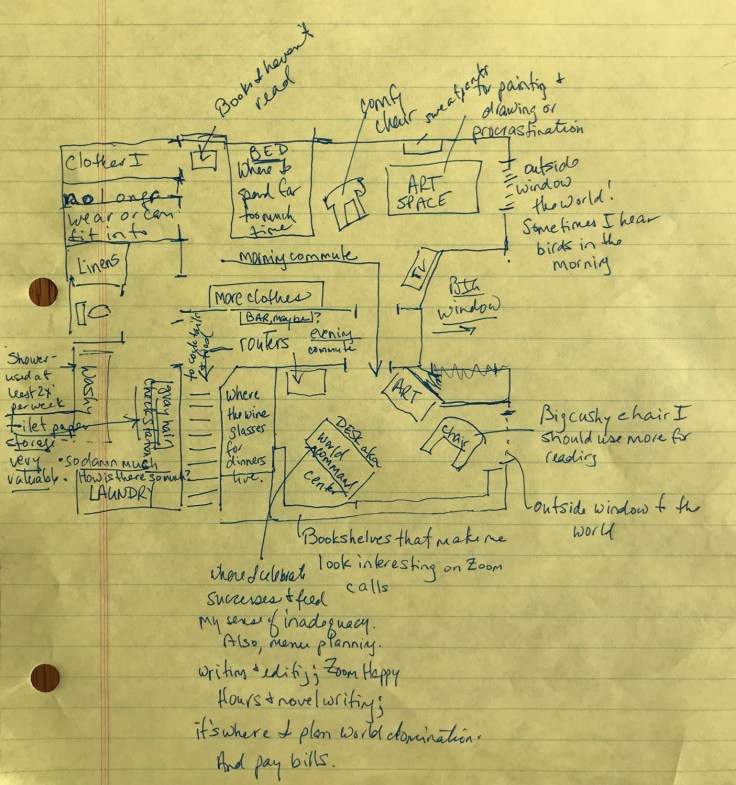 Books I haven't
read
comfy
chair
sweatpants
for painting &
drawing or
procrastination
Clothes I
no longer
wear or can
fit into
Linens
BED
Where I
spend far
too much
time
ART
SPACE
outside
window
the world!
Sometimes I hear
birds in the
morning
morning commute
TV
Big
window
More clothes
BAR, maybe?
to cocktails
& food
routers
evening
commute
Shower-
used at
least 2x
per week
toilet paper
storage-
very
valuable.
Washy
gray hair
check station
• so damn much
How is there so much?
LAUNDRY
where
the wine
glasses
for
dinners
live.
DESK aka
World
Command
center
ART
chair
Big cushy chair I
should use more for
reading
outside window to the
world
Bookshelves that make me
look interesting on Zoom
calls
where I celebrate
successes & feed
my sense of inadequacy.
Also, menu planning.
writing & editing; Zoom Happy
Hours & novel writing;
it's where I plan world domination.
And pay bills.